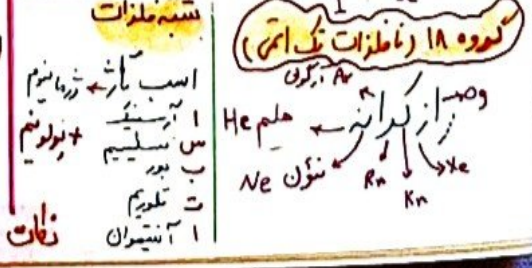 گروه ۱۸ (نافلزات تک اتمی)
Ar آرگون
Og
از کدانه
He هلیم
نئون Ne
Rn
Kr
Xe
شبه فلزات
ژرمانیوم
ا آرسنیک
س سیلیسیم
+ پولونیم
ب بور
ت تلوریم
ا آنتیموان
نکات